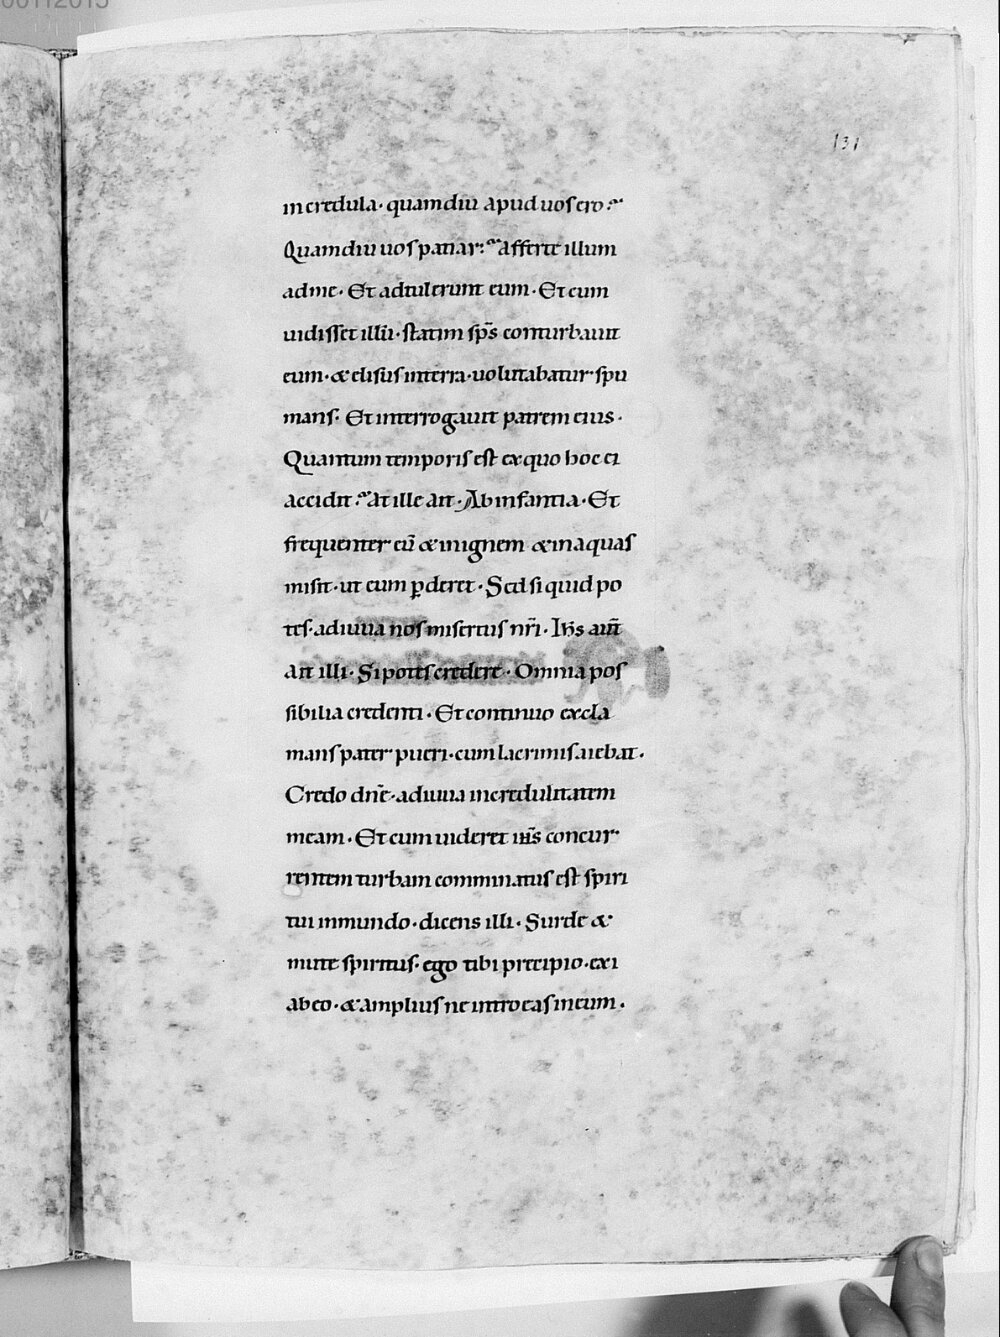 131
incredula · quamdiu apud uos ero ?
Quamdiu uos patiar ? afferte illum
ad me · Et adtulerunt eum · Et cum
uidisset illū · statim sp̄s conturbauit
eum · & elisus in terra · uolutabatur spu
mans · Et interrogauit patrem eius ·
Quantum temporis est ex quo hoc ei
accidit ? at ille ait · Ab infantia · Et
frequenter eū & in ignem & in aquas
misit · ut eum ꝑderet · Sed si quid po
tes · adiuua nos misertus nr̄i · Ihs aūt
ait illi · Si potes credere · Omnia pos
sibilia credenti · Et continuo excla
mans pater pueri · cum lacrimis aiebat ·
Credo dn̄e · adiuua incredulitatem
meam · Et cum uideret ih̄s concur
rentem turbam comminatus est spiri
tui inmundo · dicens illi · Surde &
mute spiritus · ego tibi precipio · exi
ab eo · & amplius ne introeas in eum ·